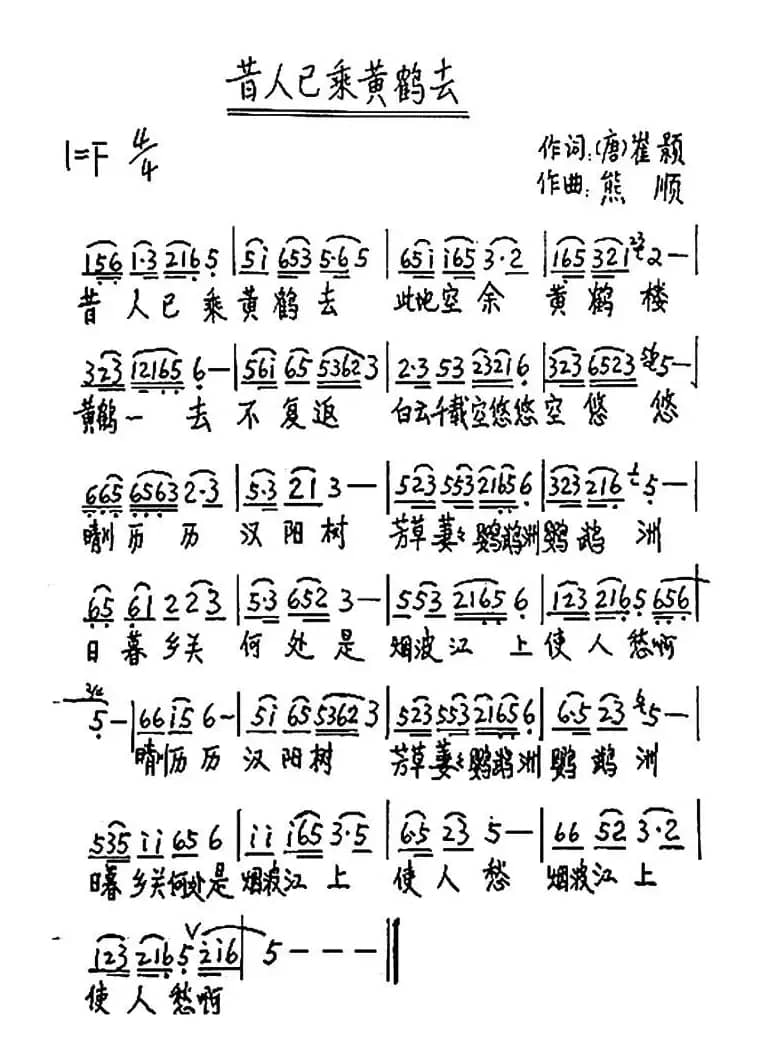 昔人已乘黄鹤去
1=F 4/4
作词:(唐)崔颢
作曲:熊 顺
156 1·3 2165 | 5i 653 5·65 | 65i i65 3·2 | 165 321 23 2— |
昔人已乘黄鹤去 此地空余黄鹤楼
323 12165 6— | 561 65 53623 | 2·3 53 23216 | 323 6523 5— |
黄鹤一去不复返 白云千载空悠悠空悠悠
665 6563 2·3 | 5·3 21 3— | 523 553 21656 | 323 216 5— |
晴川历历汉阳树 芳草萋萋鹦鹉洲鹦鹉洲
65 61 223 | 5·3 652 3— | 553 2165 6 | 123 2165 656 |
日暮乡关何处是烟波江上使人愁啊
5— | 66 i5 6— | 5i 65 53623 | 523 553 21656 | 6·5 23 5— |
晴川历历汉阳树 芳草萋萋鹦鹉洲鹦鹉洲
535 ii 65 6 | ii i65 3·5 | 6·5 23 5— | 66 52 3·2 |
日暮乡关何处是烟波江上使人愁 烟波江上
123 2165 V 2i6 | 5 — — — ‖
使人愁啊